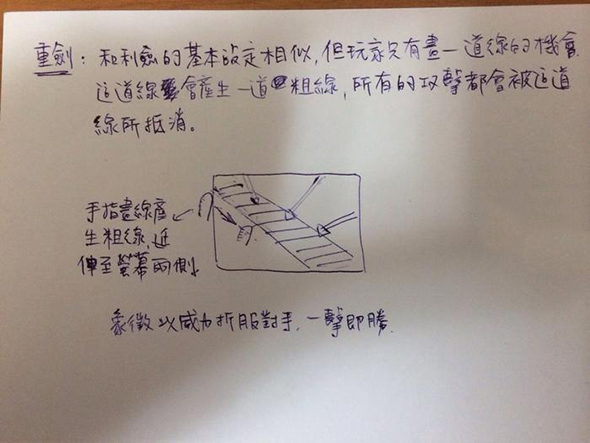 重劍：和利劍的基本設定相似，但玩家只有畫一道線的機會
這道線會產生一道粗線，所有的攻擊都會被這道
線所抵消。
手指畫線產
生粗線，延
伸至螢幕兩側
象徵以威力折服對手，一擊即勝